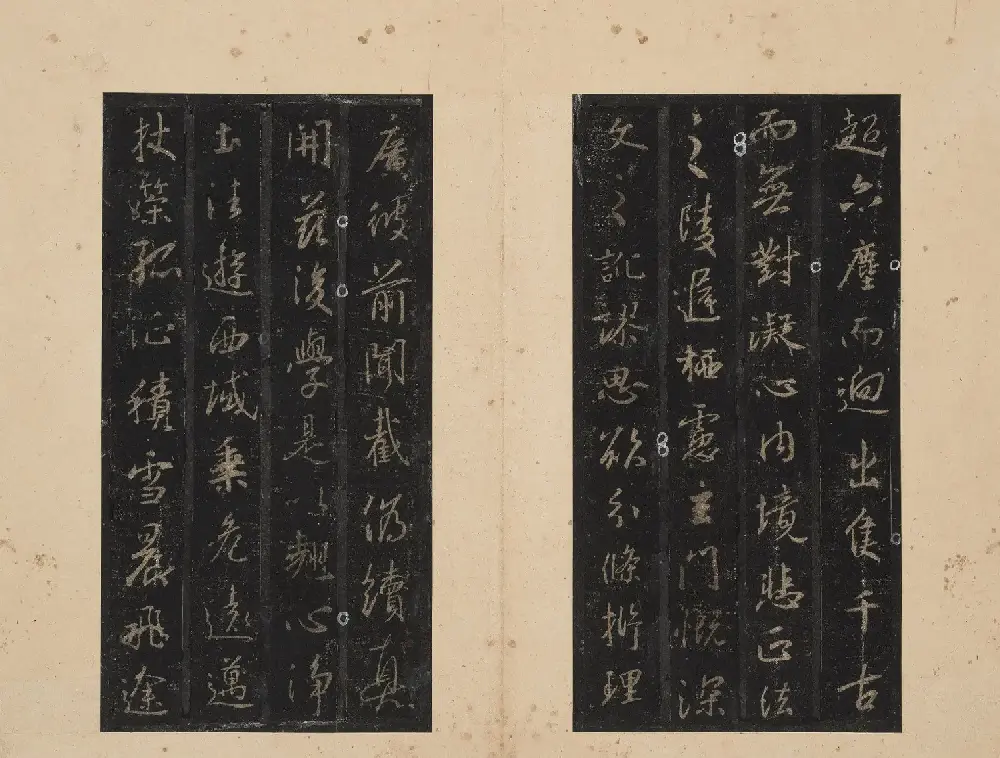 超六塵而迥出隻千古
而無對凝心內境悲正法
之陵遲栖慮玄門慨深
文之訛謬思欲分條析理
廣彼前聞截偽續真
開茲後學是以翹心淨
土法遊西域乘危遠邁
杖策孤征積雪晨飛途